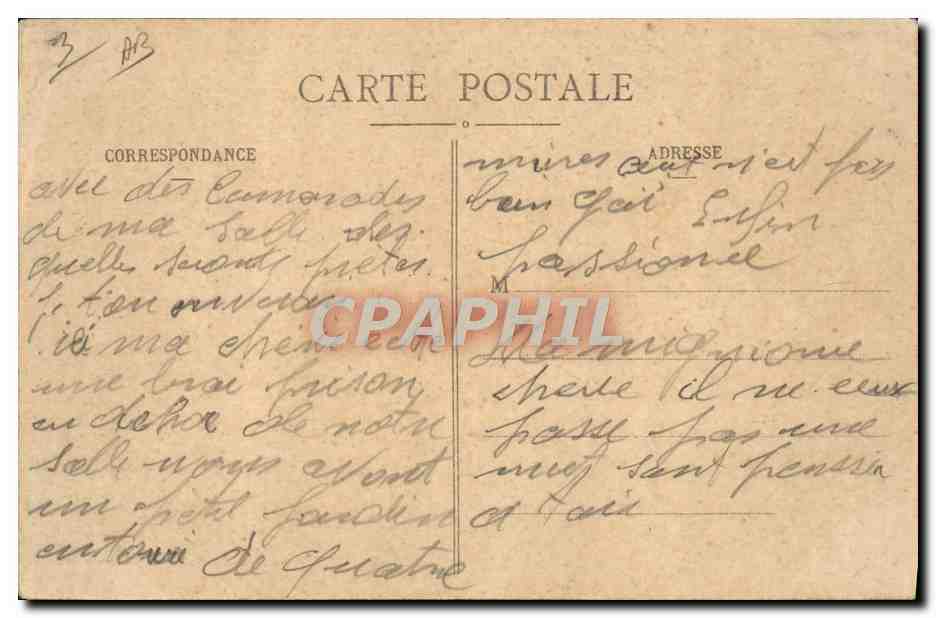 3/ AB
CARTE POSTALE
CORRESPONDANCE
avec des Camarades
de ma Salle des
quelles serons pretes
ma cheri
une brai prison
en dehor de notre
Salle nous avont
un petit jardin
entouré de quatre
ADRESSE
mures n'est pas
bien gai Enfin
passioné
M
Ma mignione
cherie il ne ceux
passe pas une
nuit sant pensser
a toi
CPAPHIL